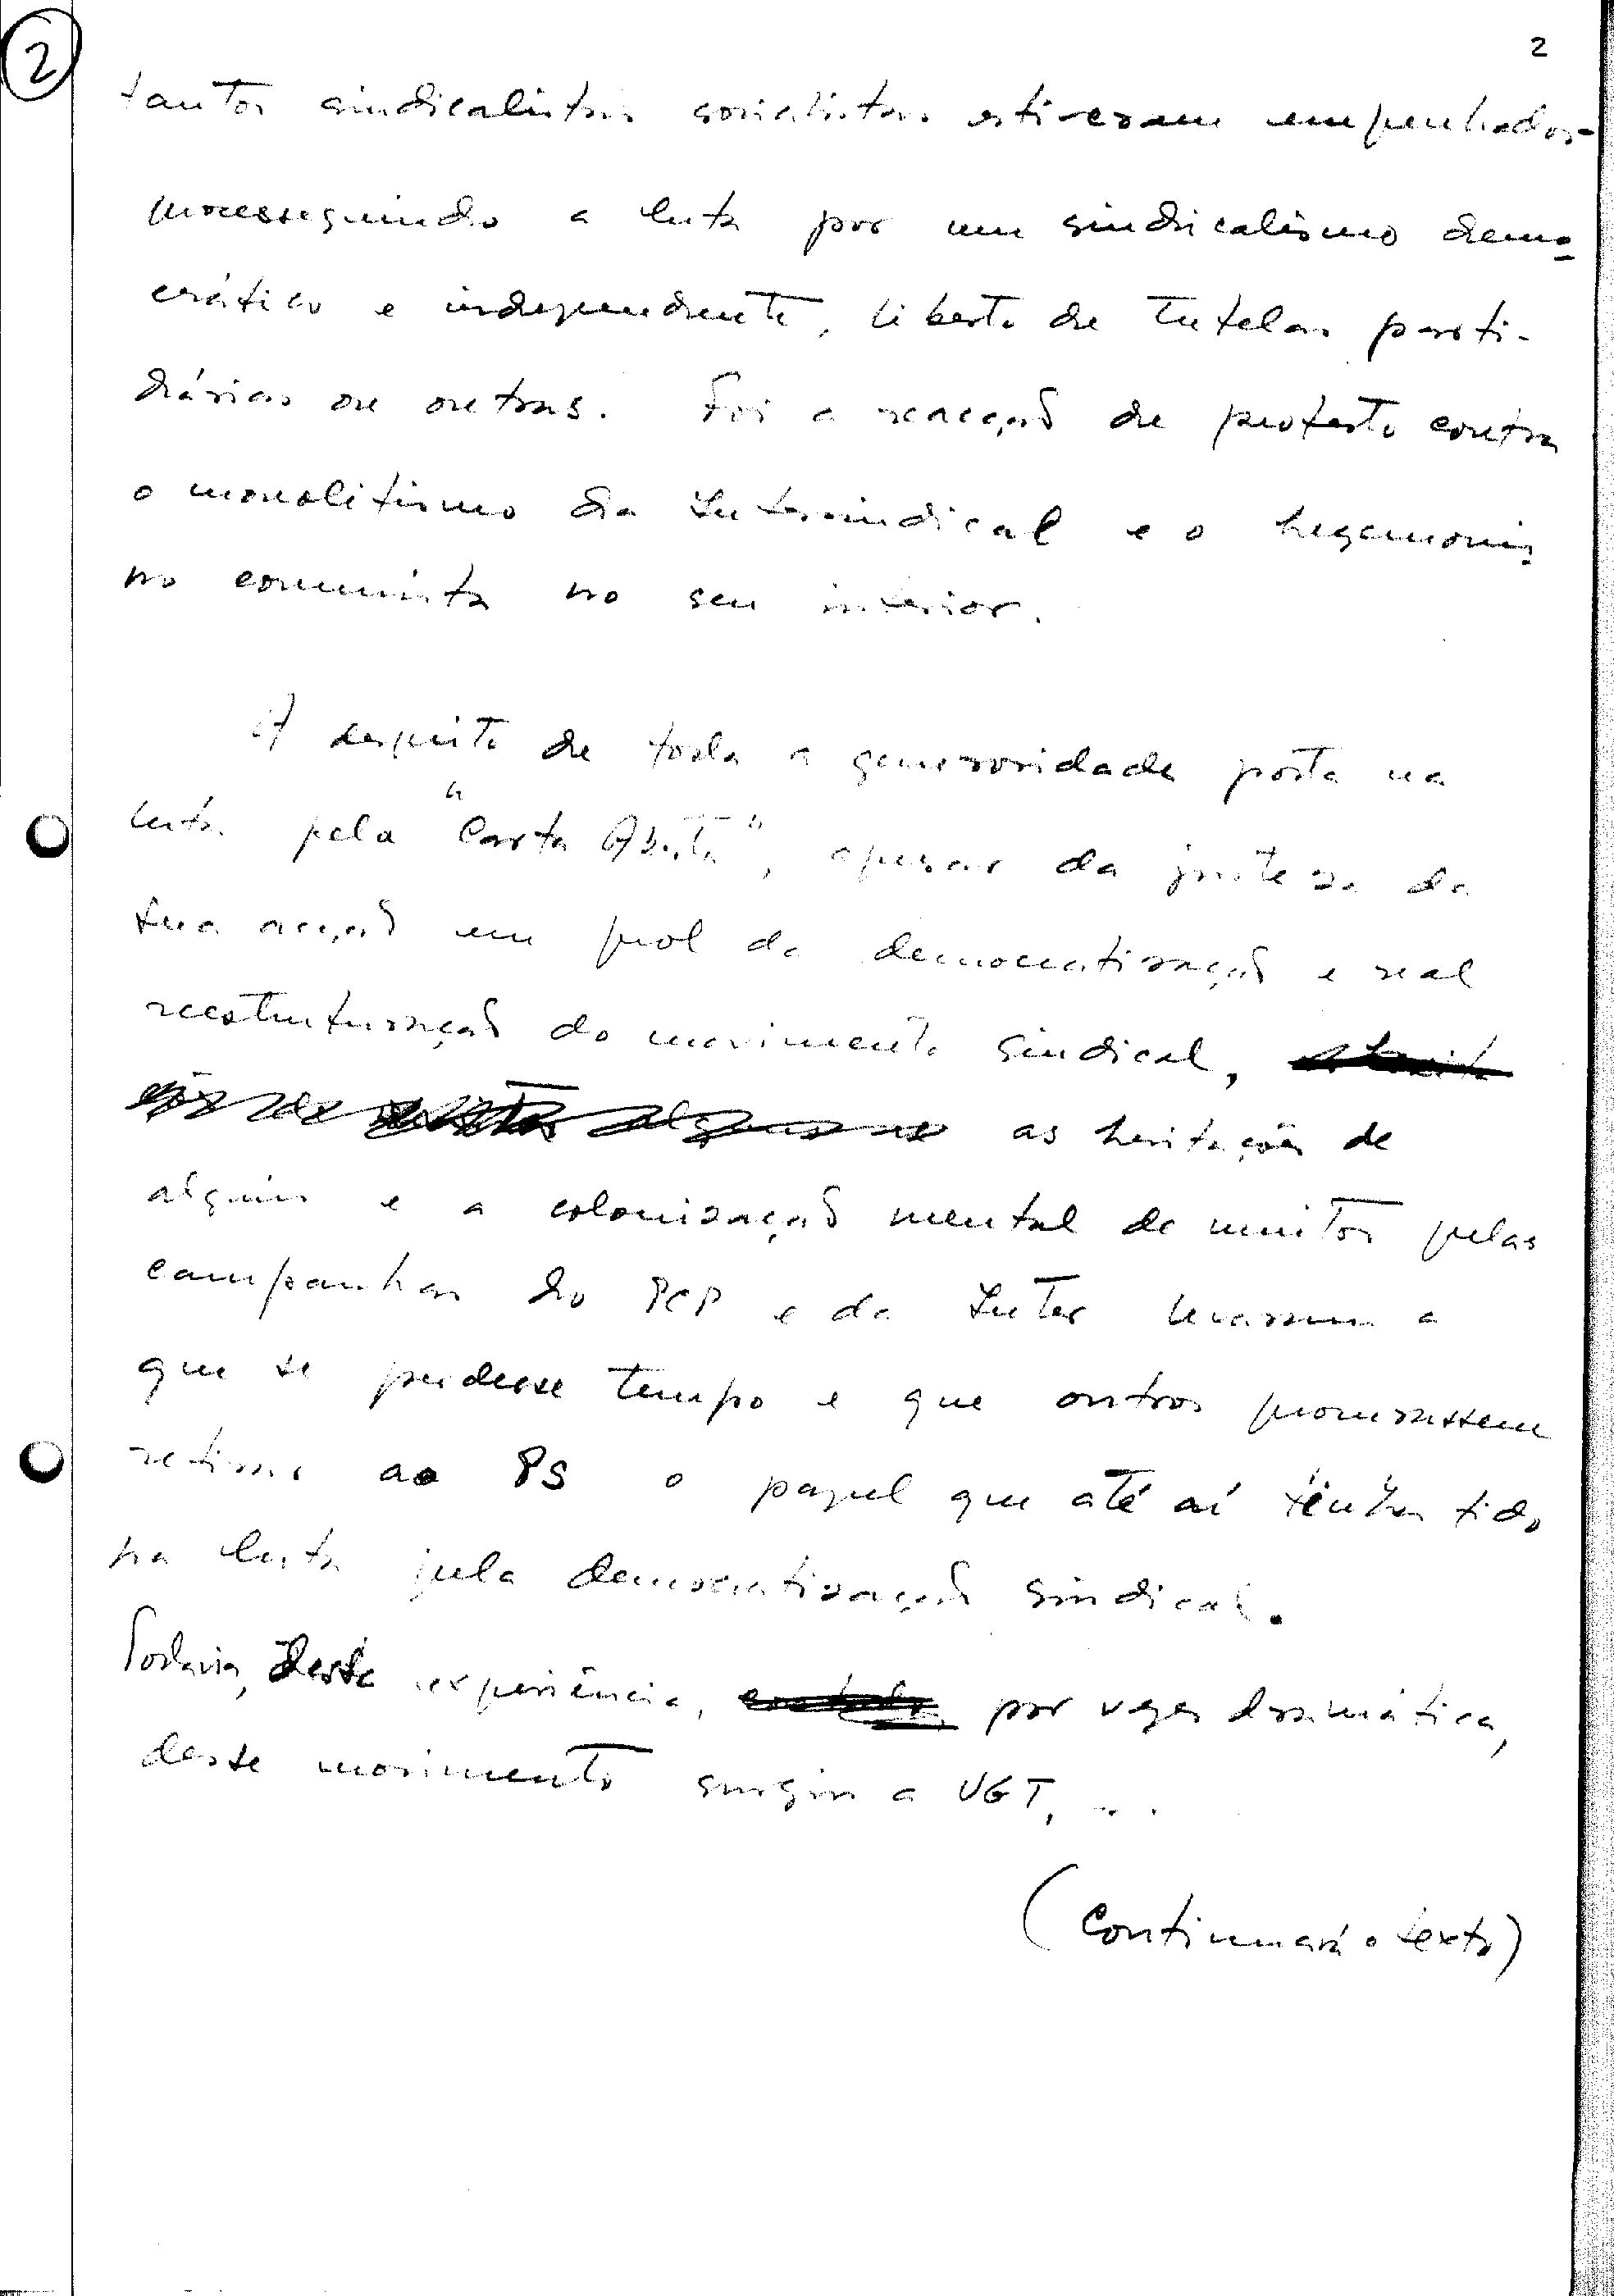 2
2
tantos sindicalistas socialistas estiveram empenhados -
prosseguindo a luta por um sindicalismo demo-
crático e independente, liberto de tutelas parti-
dárias ou outras. Foi a reacção de protesto contra
o monolitismo da Intersindical e o hegemonis-
mo comunista no seu interior.
A despeito de toda a generosidade posta na
luta pela "Carta Aberta", apesar da justeza da
sua acção em prol da democratização e real
reestruturação do movimento sindical,
as hesitações de
alguns e a colonização mental de muitos pelas
campanhas do PCP e da Inter levaram a
que se perdesse tempo e que outros procurassem
retirar ao PS o papel que até aí tinha tido
na luta pela democratização sindical.
Todavia, desta experiência, por vezes dramática,
deste movimento surgiu a UGT, ...
(Continuará o texto)